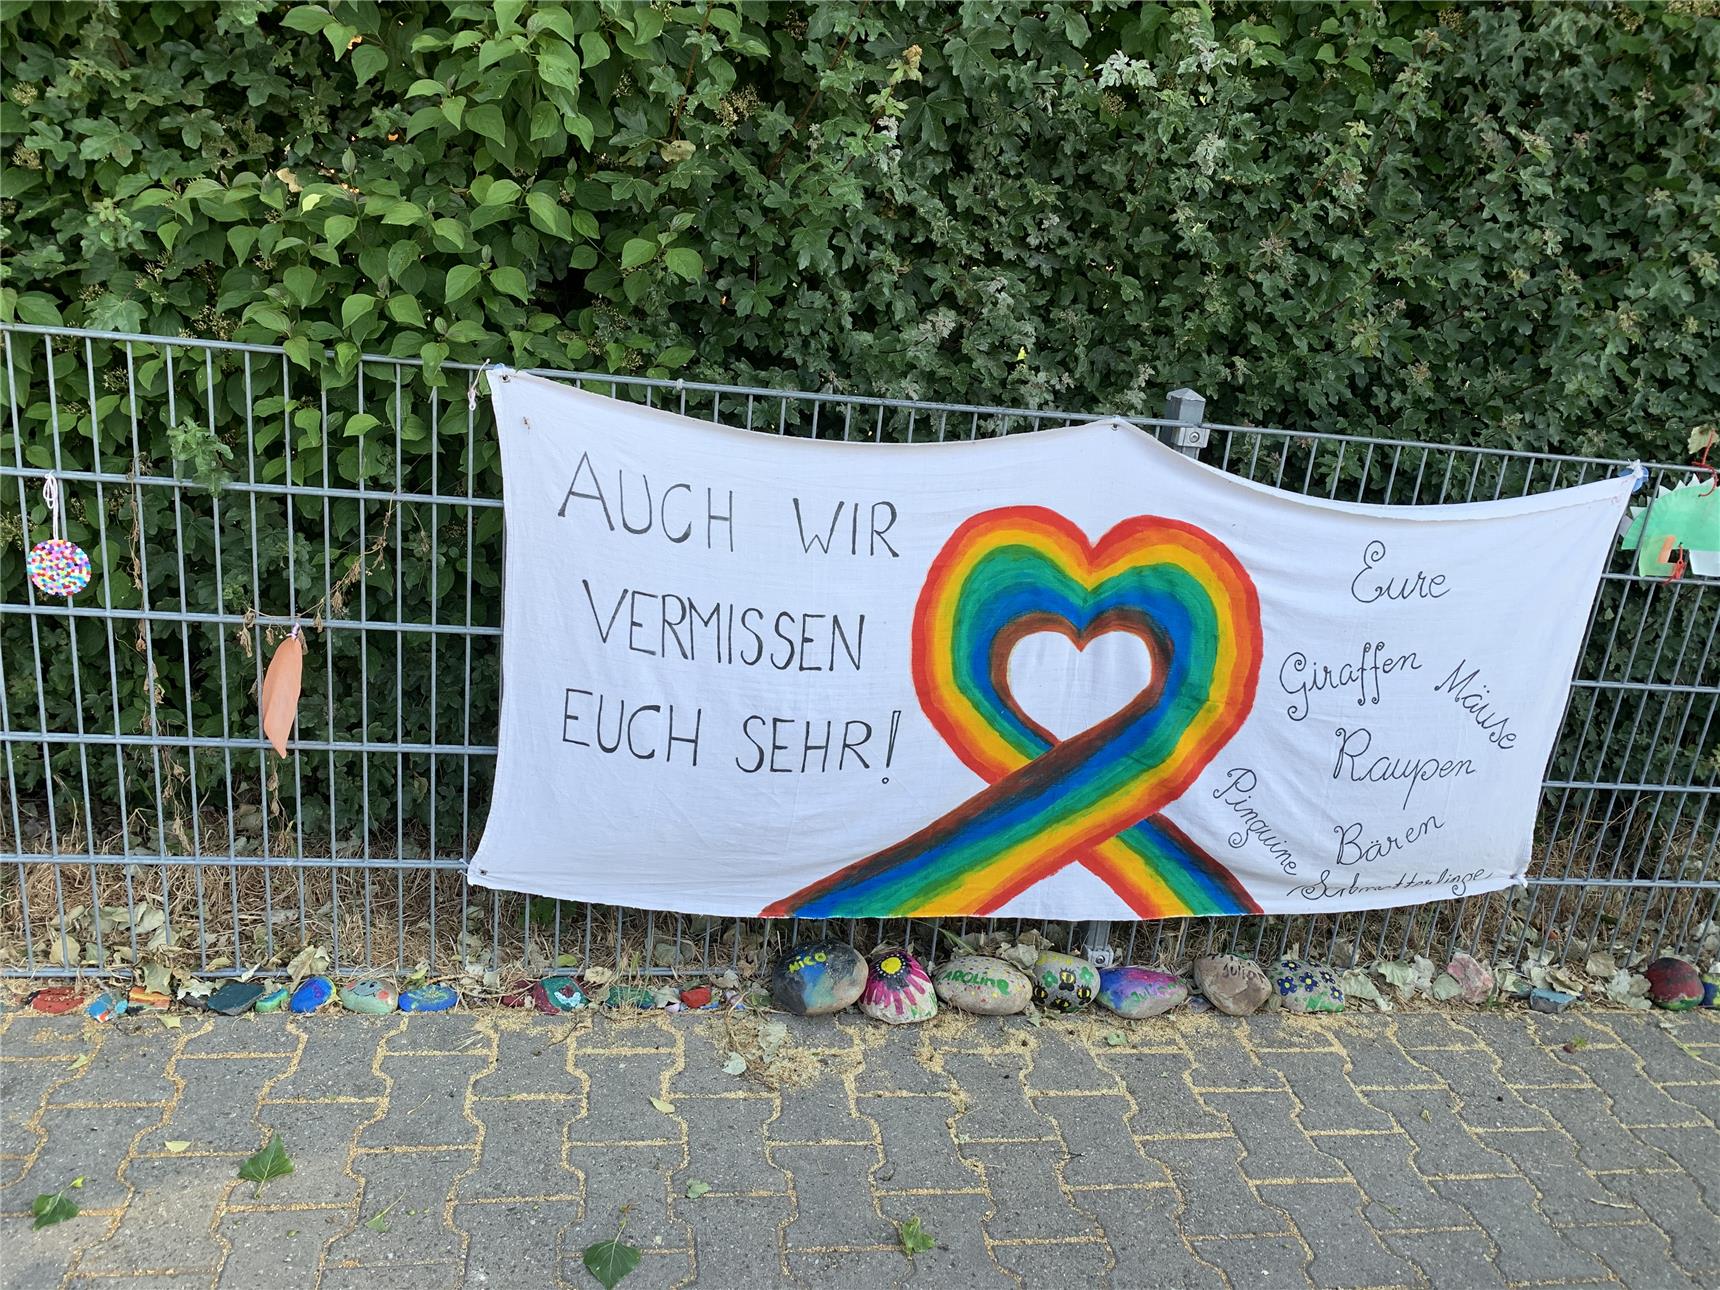 AUCH WIR
VERMISSEN
EUCH SEHR!
Eure
Giraffen
Mäuse
Raupen
Pinguine
Bären
Schmetterlinge
NICO
CAROLINE
Julian